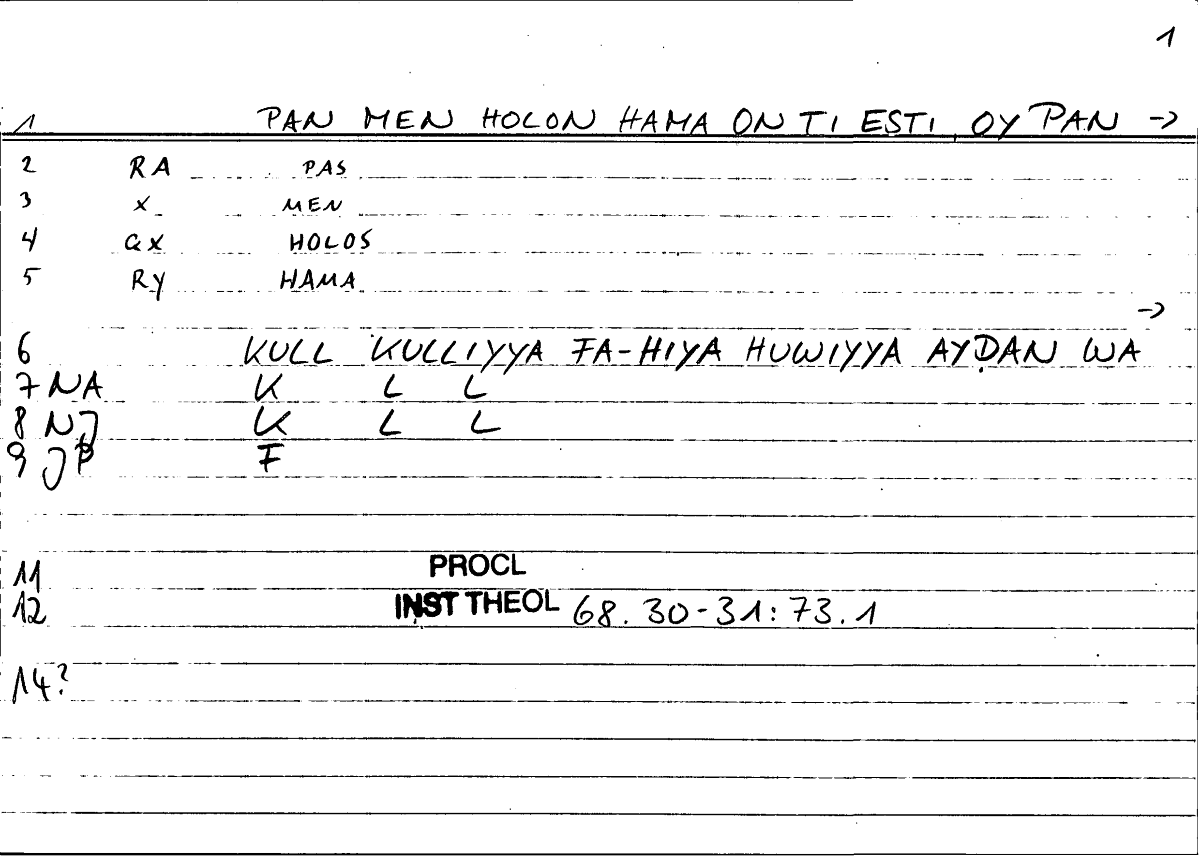 1
1 PAN MEN HOLON HAMA ON TI ESTI, OY PAN ->
2 RA PAS
3 X MEN
4 QX HOLOS
5 RY HAMA
->
6 KULL KULLIYYA FA-HIYA HUWIYYA AYḌAN WA
7 NA K L L
8 NJ K L L
9 JP F
11 PROCL
12 INST THEOL 68. 30-31: 73. 1
14?